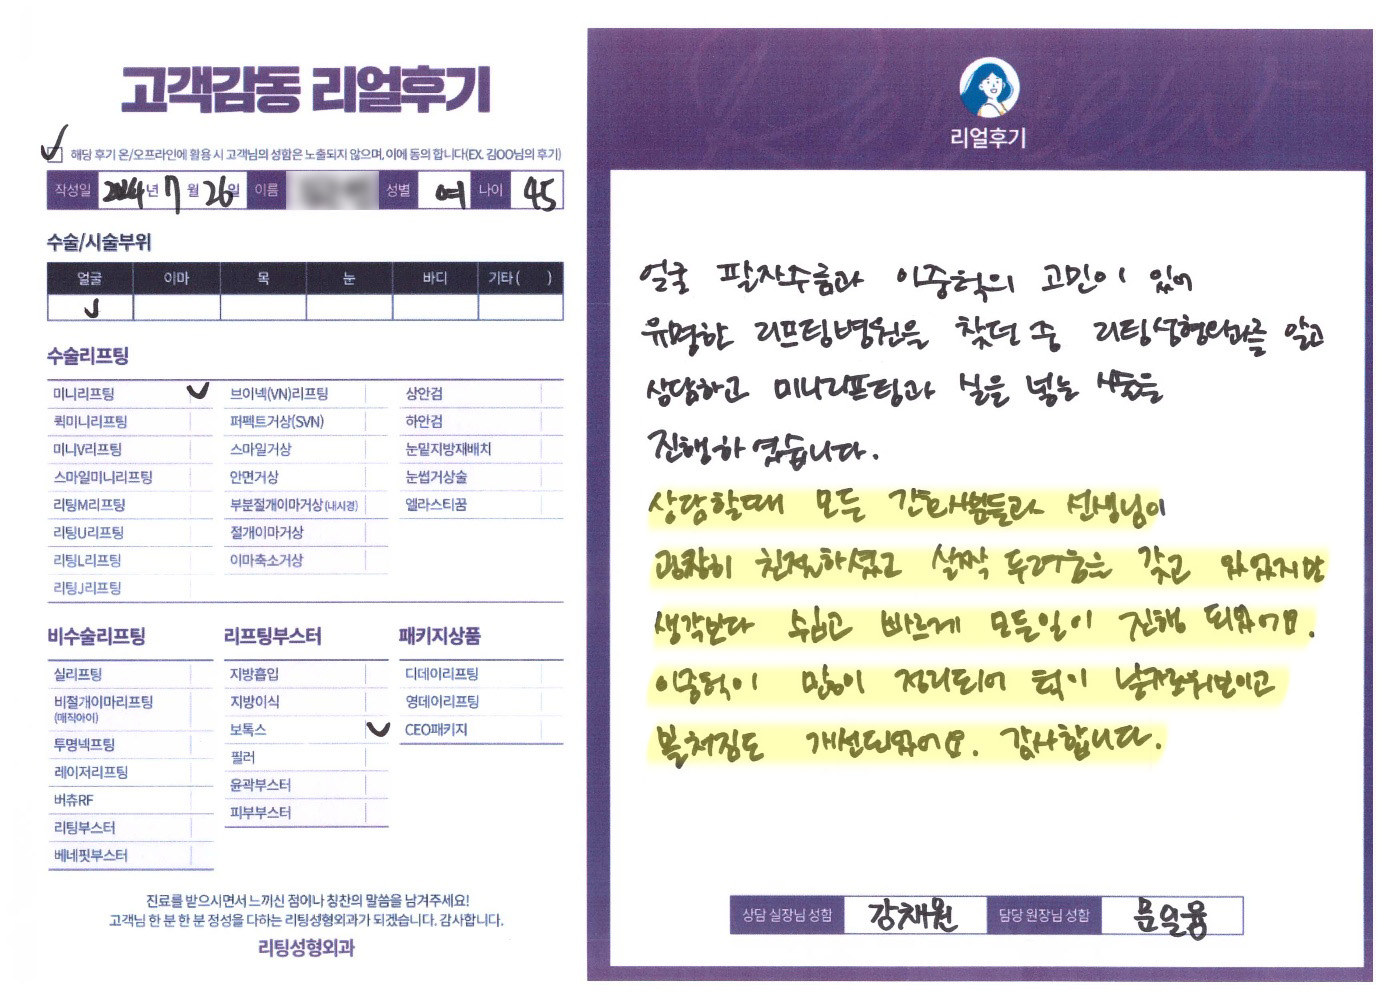 고객감동 리얼후기
해당 후기 온/오프라인에 활용 시 고객님의 성함은 노출되지 않으며, 이에 동의 합니다(EX. 김OO님의 후기)
작성일 2024년 7월 26일 이름 성별 여 나이 45
수술/시술부위
얼굴 이마 목 눈 바디 기타 ( )
수술리프팅
미니리프팅 브이넥(VN)리프팅 상안검
퀵미니리프팅 퍼펙트거상(SVN) 하안검
미니V리프팅 스마일거상 눈밑지방재배치
스마일미니리프팅 안면거상 눈썹거상술
리팅M리프팅 부분절개이마거상(내시경) 엘라스티꿈
리팅U리프팅 절개이마거상
리팅L리프팅 이마축소거상
리팅J리프팅
비수술리프팅 리프팅부스터 패키지상품
실리프팅 지방흡입 디데이리프팅
비절개이마리프팅 지방이식 영데이리프팅
(매직아이)
보톡스 CEO패키지
투명넥프팅 필러
레이저리프팅 윤곽부스터
버츄RF 피부부스터
리팅부스터
베네핏부스터
진료를 받으시면서 느끼신 점이나 칭찬의 말씀을 남겨주세요!
고객님 한 분 한 분 정성을 다하는 리팅성형외과가 되겠습니다. 감사합니다.
리팅성형외과
리얼후기
얼굴 팔자주름과 이중턱의 고민이 있어
유명한 리프팅병원을 찾던 중 리팅성형외과를 알고
상담하고 미니리프팅과 실을 넣는 시술을
진행하였습니다.
상담할때 모든 간호사분들과 선생님이
굉장히 친절하셨고 살짝 두려움을 갖고 왔었지만
생각보다 쉽고 빠르게 모든일이 진행 되었어요.
이중턱이 많이 정리되어 턱이 날카로워보이고
볼처짐도 개선되었어요. 감사합니다.
상담 실장님 성함 강채원 담당 원장님 성함 문일웅